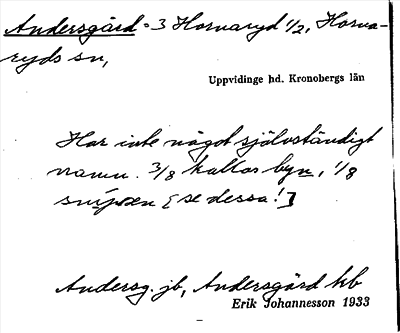 Andersgård = 3 Hornaryd 1/2, Horna-
ryds sn,
Uppvidinge hd. Kronobergs län
Har inte något självständigt
namn. 3/8 kallas byn, 1/8
snipen [se dessa!]
Andersg. jb, Andersgård hb
Erik Johannesson 1933